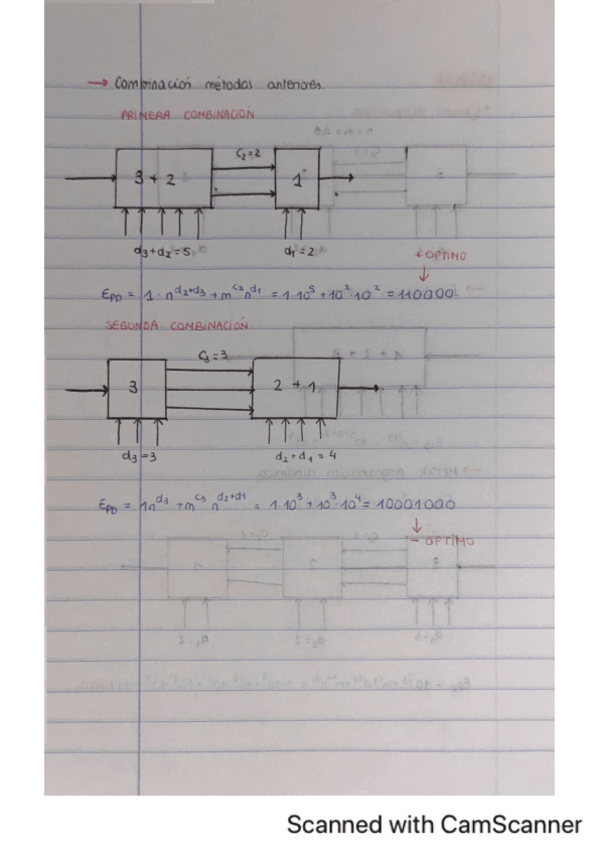 → Combinación métodos anteriores.
PRIMERA COMBINACIÓN
3 + 2
C₂=2
1
d₃+d₂=5
d₁=2
+ ÓPTIMO
↓
E_PD = 1 · n^(d₂+d₃) + m^(c₂) n^(d₁) = 1·10⁵ + 10²·10² = 110000.
SEGUNDA COMBINACIÓN
3
C₃=3
2 + 1
d₃=3
d₂+d₁ = 4
E_PD = 1n^(d₃) + m^(c₃) n^(d₂+d₁) = 1·10³ + 10³·10⁴ = 10001000
↓
- ÓPTIMO
Scanned with CamScanner